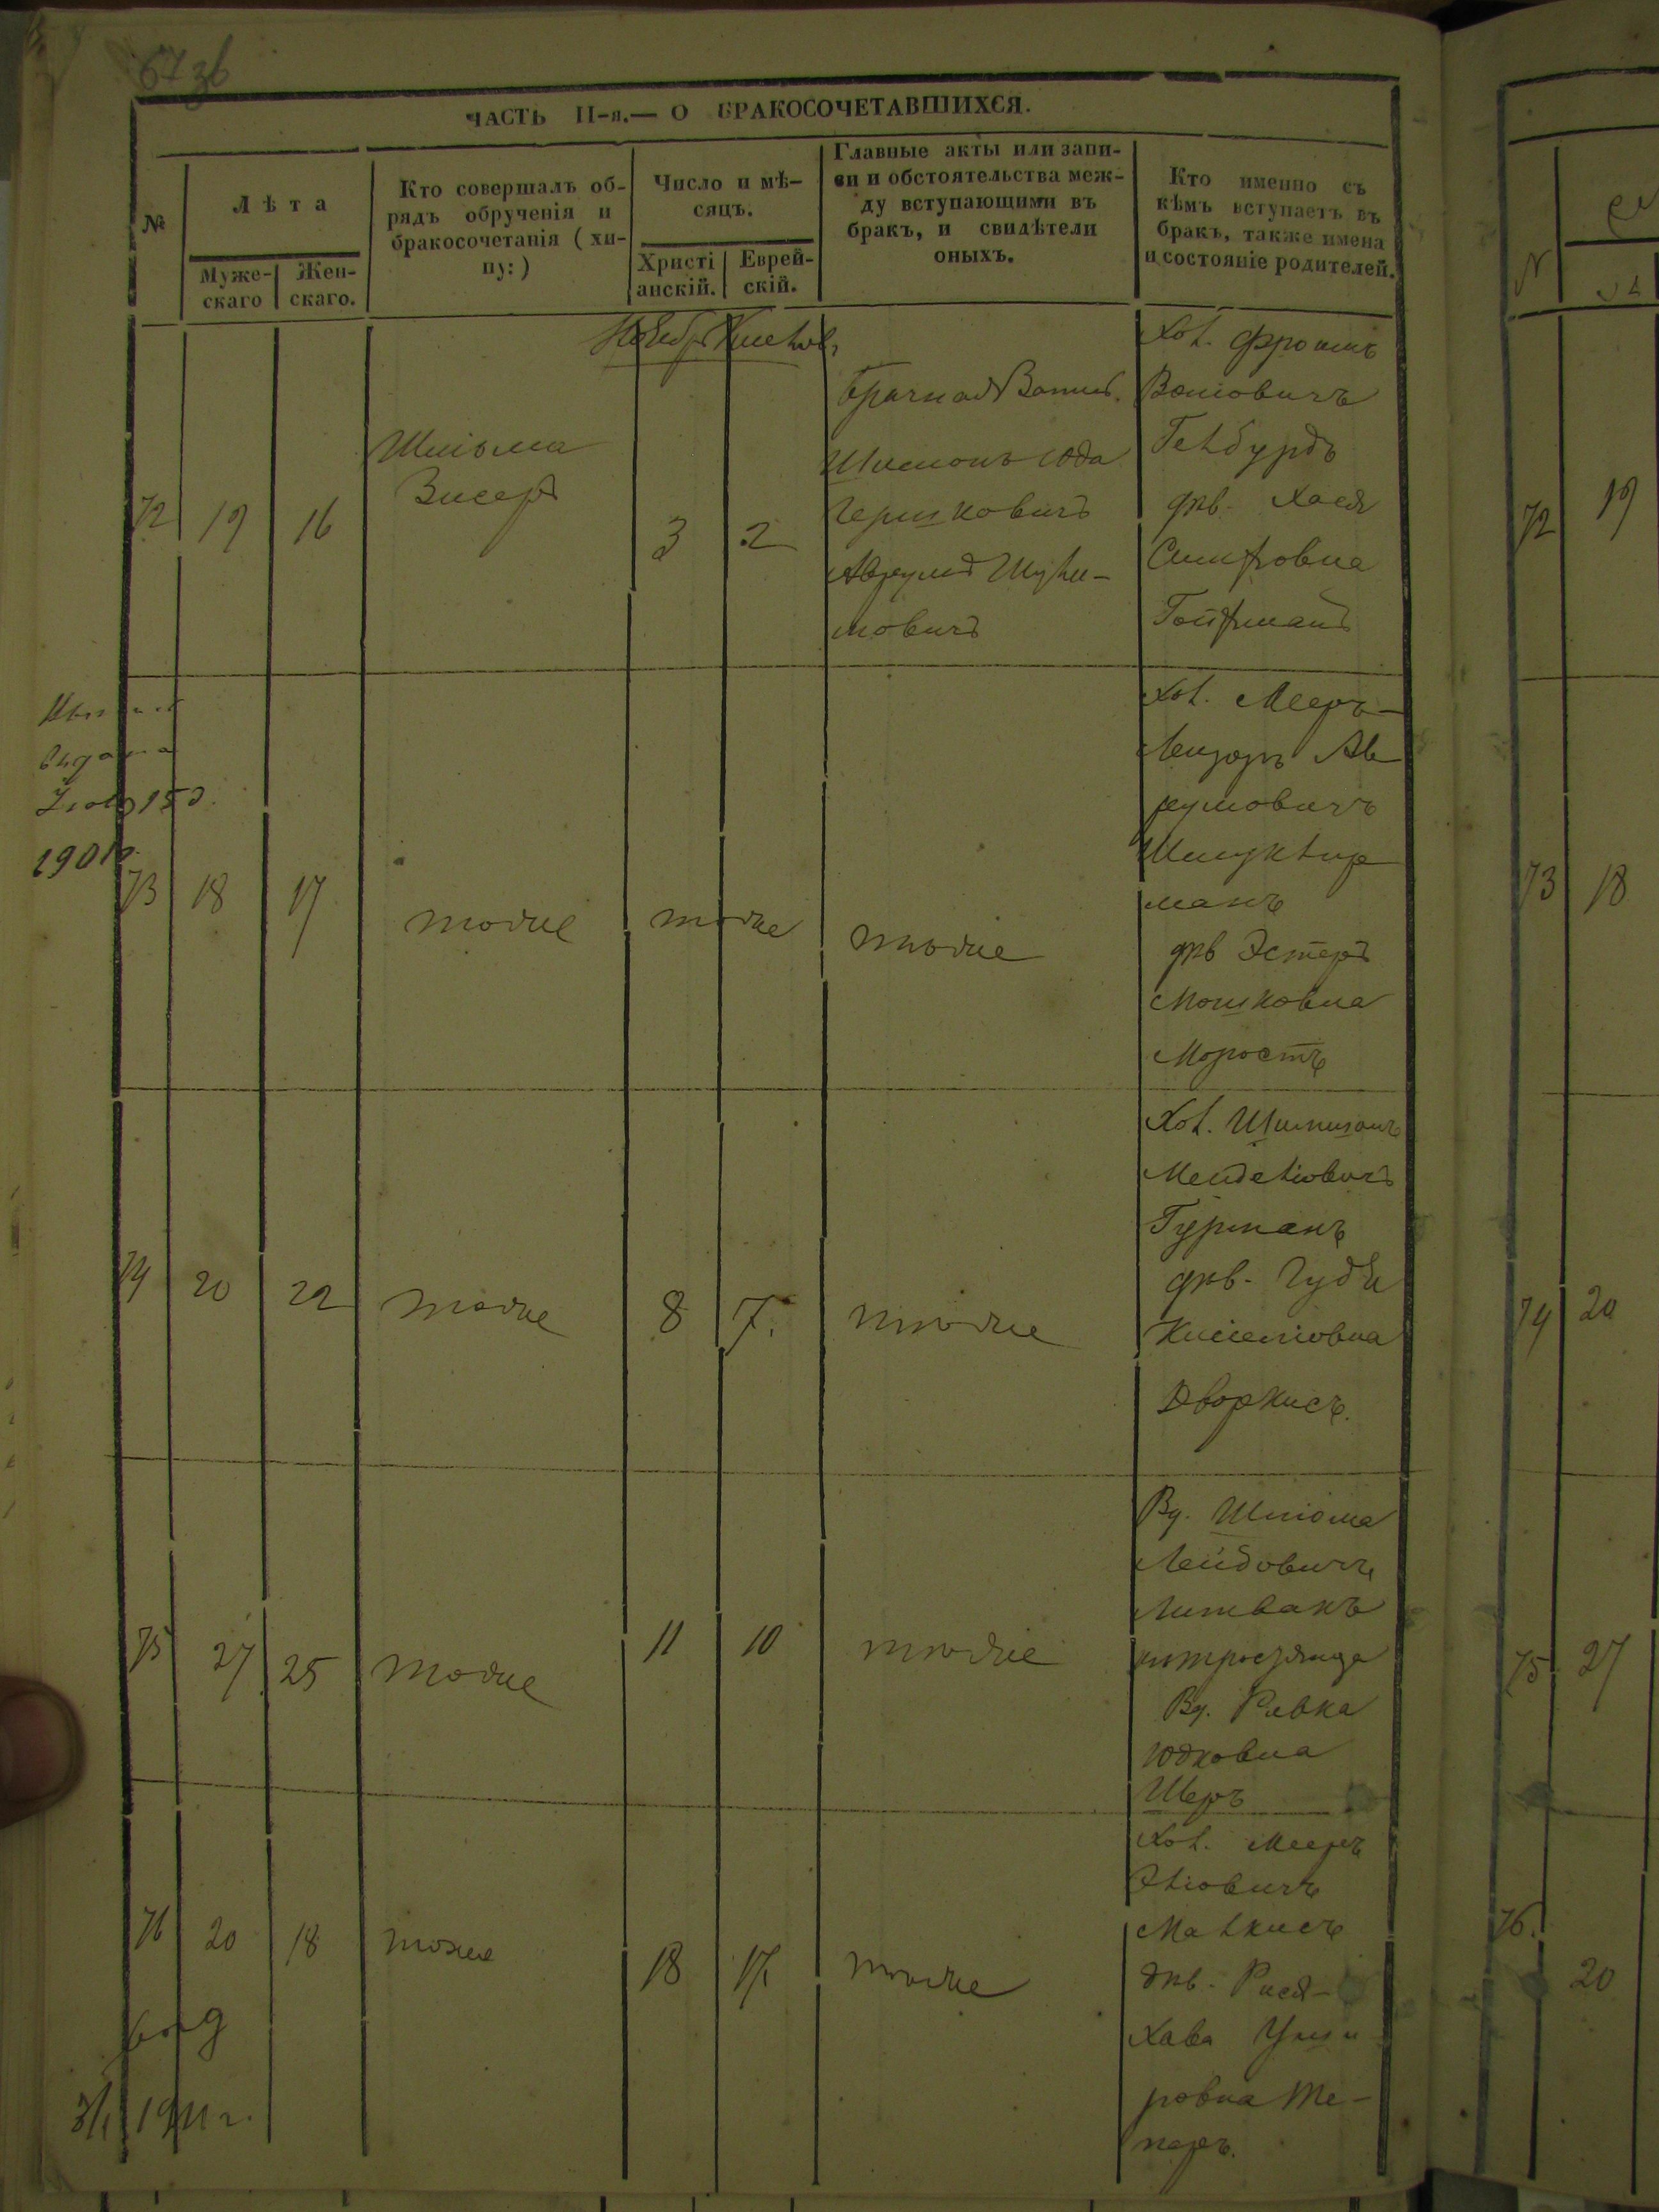 67 зв
ЧАСТЬ II-я.— О БРАКОСОЧЕТАВШИХСЯ.
№
Лѣта
Муже-
скаго
Жен-
скаго.
Кто совершалъ об-
рядъ обрученія и
бракосочетанія ( хи-
пу: )
Число и мѣ-
сяцъ.
Христі
анскій.
Еврей-
скій.
Главные акты или запи-
си и обстоятельства меж-
ду вступающими въ
бракъ, и свидѣтели
оныхъ.
Кто именно съ
кѣмъ вступаетъ въ
бракъ, также имена
и состояніе родителей.
72
19
16
Шліома
Зисеръ
3
2
Брачная Запись.
Шимонъ Юда
Гершковичъ
Аврумъ
мовичъ
Хол. Фроимъ
Волювичъ
Гельбурдъ
двв. Хася
Гойфманъ
73
18
17
тоже
тоже
тоже
Хол. Мееръ-
Лейзоръ Ав
румовичъ
манъ
двв Эстеръ
Мошковна
Моростъ
1901г.
74
20
22
тоже
8
7.
тоже
Хол. Шимшонъ
Менделіовичъ
Гурманъ
двв. Гудля
Киселіовна
Дворкисъ.
75
27
25
тоже
11
10
тоже
Вд. Шліома
Лейбовичъ
Литвакъ
Вд. Ривка
Юдковна
Шеръ
76
20
18
тоже
18
17.
тоже
Хол. Мееръ
Эліовичъ
Малкисъ
двв. Рися-
Хава Уши
ровна Те-
перъ.
выд
3/I 1911 г.
72
19
73
18
74
20
75
27
76.
20